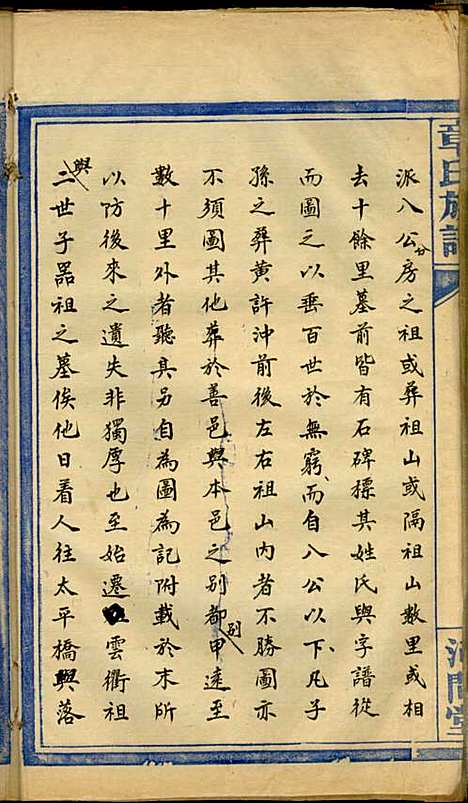 章氏族譜
派八公分房之祖或葬祖山或隔祖山數里或相
去十餘里墓前皆有石碑標其姓氏與字譜從
而圖之以垂百世於無窮而自八公以下凡子
孫之葬黃許沖前後左右祖山內者不勝圖亦
不須圖其他葬於善邑與本邑之別都別甲遠至
數十里外者聽其另自為圖為記附載於末所
以防後來之遺失非獨厚也至始遷雲衢祖
與二世子器祖之墓俟他日着人往太平橋與落
河間堂